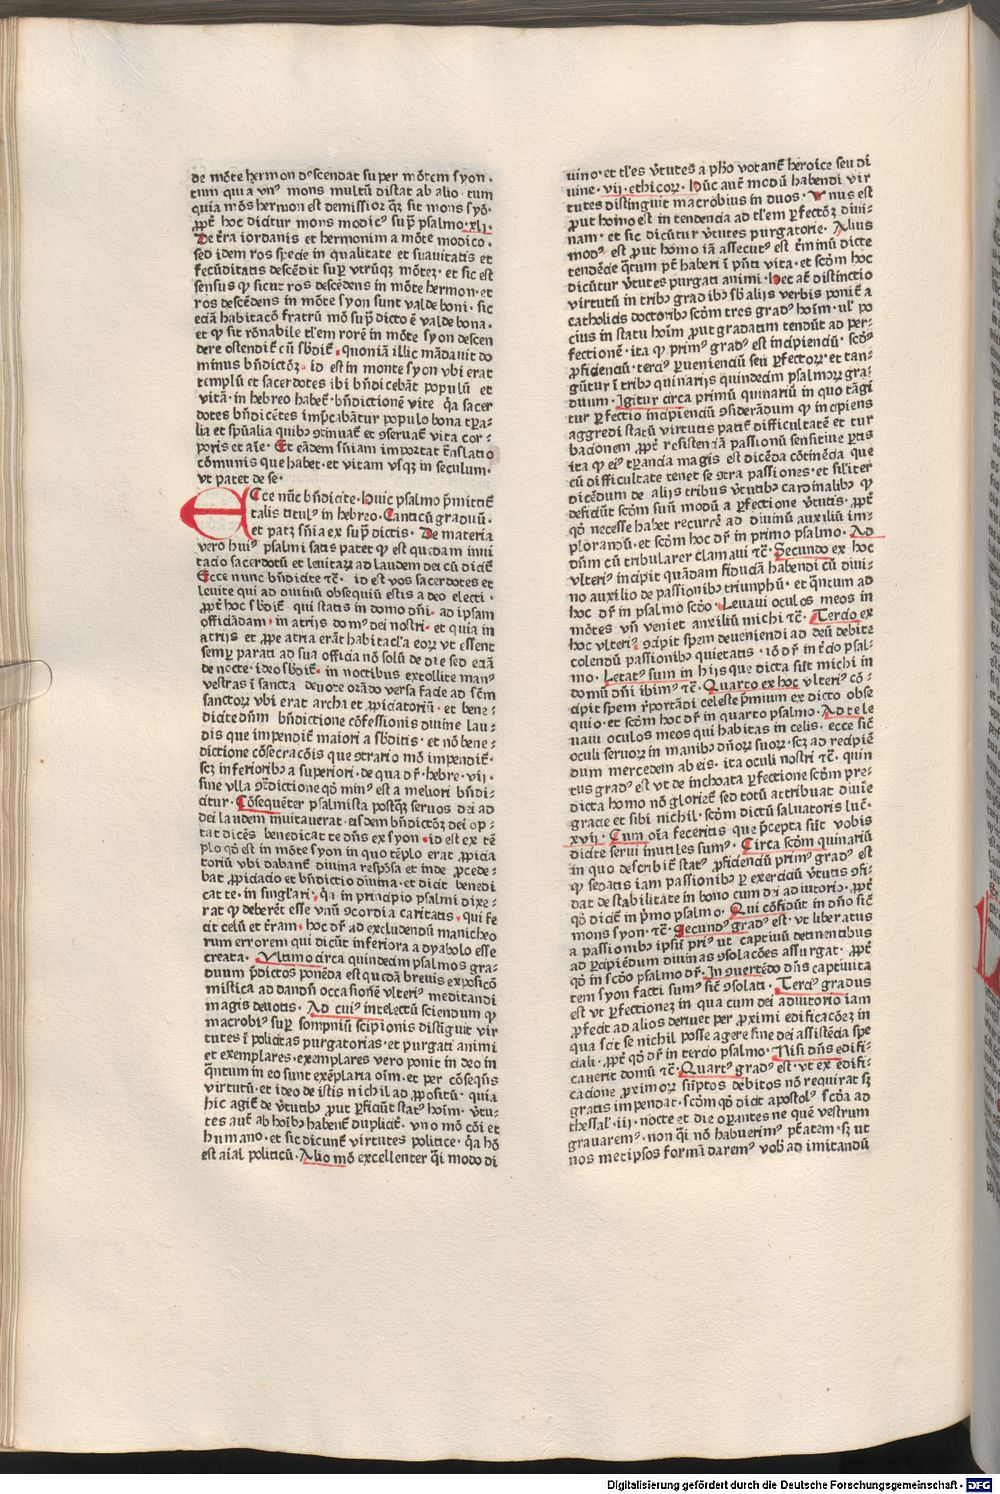 de mõte hermon dʼscendat super mõtem syon.
tum quia vnꝰ mons multũ distat ab alio. tum
quia mõs hermon est demissior qʒ sit mons syõ.
ꝓpẽ hoc dicitur mons modicꝰ supᵃ psalmo. xli.
De tẽra iordanis et hermonim a mõte modico.
sed idem ros specie in qualitate et suauitatis et
fecũditatis descẽdit suꝑ vtrũqʒ mõteʒ. et sic est
sensus ꝙ sicut ros descẽdens in mõte hermon. et
ros descẽdens in mõte syon sunt valde boni. sic
eciã habitacõ fratrũ mõ supᵃdicto ẽ valde bona.
et ꝙ sit rõnabile tl̃em rorẽ in mõte syon descen
dere ostendit̃ cũ sb̃dit̃. quoniã illic mãdauit do
minus bñdictõʒ. id est in monte syon vbi erat
templũ et sacerdotes ibi bñdicebãt populũ et
vitã. in hebreo habet̃. bñdictionẽ vite qꝛ sacer
dotes bñdicẽtes imp̃cabãtur populo bona tp̃a-
lia et sp̃ualia quibꝰ ꝯtinuat̃ et ꝯseruat̃ vita cor-
poris et aĩe. Et eãdem sñiam importat trãslatio
cõmunis que habet. et vitam vsqʒ in seculum.
vt patet de se.
Ecce nũc bñdicite. Huic psalmo p̃mittit̃
talis titulꝰ in hebreo. Canticũ graduũ.
et patʒ sñia ex supᵃ dictis. De materia
vero huiꝰ psalmi satis patet ꝙ est quedam inui
tacio sacerdotũ et leuitaꝝ ad laudem dei cũ dicit̃
Ecce nunc bñdicite tc̃. id est vos sacerdotes et
leuite qui ad diuinũ obsequiũ estis a deo electi.
ꝓpẽ hoc sb̃dit̃ qui statis in domo dñi. ad ipsam
officiãdam. in atrijs domꝰ dei nostri. et quia in
atrijs et ꝓpe atria erãt habitacl̃a eoꝝ vt essent
semꝑ parati ad sua officia nõ solũ de die sed eciã
de nocte. ideo sb̃dit̃. in noctibus extollite manꝰ
vestras ĩ sancta deuote orãdo versa facie ad sc̃m
sanctoꝝ vbi erat archa et ꝓpiciatoriũ. et bene-
dicite dñm bñdictione cõfessionis diuine lau-
dis que impendit̃ maiori a sb̃ditis. et nõ bene-
dictione cõsecracõis que ꝯtrario mõ impendit̃.
scʒ inferioribꝰ a superiori. de qua dr̃. hebre. vij.
sine vlla ꝯtᵃdictione qõ minꝰ est a meliori bñdi-
citur. Cõsequẽter psalmista postqᵃʒ seruos dei ad
dei laudem inuitauerat. eisdem bñdictõʒ dei op-
tat dicẽs benedicat te dñs ex syon. id est ex tẽ
plo qõ est in mõte syon in quo tẽplo erat ꝓpicia
toriũ vbi dabant̃ diuina respõsa et inde ꝓcede-
bat ꝓpiciacio et bñdictio diuina. et dicit benedi
cat te. in singl̃ari. qꝛ in principio psalmi dixe-
rat ꝙ deberẽt esse vnũ ꝯcordia caritatis. qui fe
cit celũ et tẽram. hoc dr̃ ad excludendũ manicheo
rum errorem qui dicũt inferiora a dyabolo esse
creata. Vltimo circa quindecim psalmos gra-
duum p̃dictos ponẽda est quedã breuis exposicõ
mistica ad dandũ occasionẽ vlteriꝰ meditandi
magis deuotis. Ad cuiꝰ intelectũ sciendum ꝙ
macrobiꝰ suꝑ sompniũ scipionis distiguit vir
tutes ĩ policitas purgatorias. et purgati animi
et exemplares. exemplares vero ponit in deo in
qᵃntum in eo sunt exẽplaria oĩm. et per cõseqñs
virtutũ. et ideo de istis nichil ad ꝓpositũ. quia
hic agit̃ de v̾tutibꝰ ꝓut ꝑficiũt statꝰ hoĩm. v̾tu-
tes aut̃ ab hoĩbꝰ habent̃ duplicit̃. vno mõ cõi et
humano. et sic dicunt̃ virtutes politice. qꝛ hõ
est aĩal politicũ. Alio mõ excellenter qᵃsi modo di
uino. et tl̃es v̾tutes a ph̃o votant̃ heroice seu di
uine. vij. ethicoꝝ. Hũc aut̃ modũ habendi vir
tutes distinguit macrobius in duos. Vnus est
ꝓut homo est in tendencia ad tl̃em ꝑfectõʒ diui-
nam. et sic dicũtur v̾tutes purgatorie. Alius
modꝰ est ꝓut homo iã assecutꝰ est t̾minũ dicte
tendẽcie qᵃtum pt̃ haberi ĩ pñti vita. et scõm hoc
dicũtur v̾tutes purgati animi. Hec at̃ distinctio
virtutũ in tribꝰ gradibꝰ sb̃ alijs verbis ponit̃ a
catholicis doctoribꝰ scõm tres gradꝰ hoĩm. ul̃ po
cius in statu hoĩm ꝓut gradatim tendũt ad per-
fectionẽ. ita ꝙ primꝰ gradꝰ est incipienciũ. scõꝰ
ꝓficienciũ. terciꝰ ꝑueniencium seu ꝑfectoꝝ. et tan-
gũtur ĩ tribꝰ quinarijs quindecim psalmoꝝ gra
duum. Igitur circa primũ quinariũ in quo tãgi
tur ꝑfectio incipienciũ ꝯsiderãdum ꝙ incipiens
aggredi statũ virtutis patit̃ difficultatẽ et tur
bacionem ꝓpt̃ resistenciã passionũ sensitiue ꝑtis
ita ꝙ eiꝰ tꝑancia magis est dicẽda cõtinẽcia que
cũ difficultate tenet se ꝯtra passiones. et sil̃iter
dicẽdum de alijs tribus v̾tutibꝰ cardinalibꝰ ꝙ
deficiũt scõm suũ modũ a ꝑfectione v̾tutis. ꝓpt̃
qõ necesse habet recurrer̃ ad diuinũ auxiliũ im-
plorandũ. et scõm hoc dr̃ in primo psalmo. Ad
dñm cũ tribularer clamaui tc̃. Secundo ex hoc
vlteriꝰ incipit quãdam fiduciã habendi cũ diui-
no auxilio de passionibꝰ triumphũ. et qᵃntum ad
hoc dr̃ in psalmo scõo. Leuaui oculos meos in
mõtes vñ veniet auxiliũ michi tc̃. Tercio ex
hoc vlteriꝰ ꝯcipit spem deueniendi ad deũ debite
colendũ passionibꝰ quietatis. iõ dr̃ in tẽcio psal-
mo. Letatꝰ sum in hijs que dicta sũt michi in
domũ dñi ibimꝰ tc̃. Quarto ex hoc vlteriꝰ cõ-
cipit spem rẽportãdi celeste p̃mium ex dicto obse
quio. et scõm hoc dr̃ in quarto psalmo. Ad te le
uaui oculos meos qui habitas in celis. ecce sic̃
oculi seruoꝝ in manibꝰ dñoꝝ suoꝝ. scʒ ad recipiẽ
dum mercedem ab eis. ita oculi nostri tc̃. quin
tus gradꝰ est vt de inchoata ꝑfectione scõm pre-
dicta homo nõ gloriet̃ sed totũ attribuat diuĩe
gracie et sibi nichil. scõm dictũ saluatoris luc̃.
xvij. Cum oĩa feceritis que p̃cepta sũt vobis
dicite serui inutiles sumꝰ. Circa scõm quinariũ
in quo describit̃ statꝰ ꝓficienciũ primꝰ gradꝰ est
ꝙ sedatis iam passionibꝰ ꝑ exerciciũ v̾tutis ꝯfi-
dat de stabilitate in bono cum dei adiutorio. ꝓpt̃
qõ dicit̃ in p̃mo psalmo. Qui cõfidũt in dño sic̃
mons syon. tc̃. Secundꝰ gradꝰ est. vt liberatus
a passionibꝰ ipsũ priꝰ ut captiuũ detinentibus
ad ꝑcipiendum diuinas ꝯsolacões assurgat. ꝓpt̃
qõ in scõo psalmo dr̃. In ꝯuertẽdo dñs captiuita
tem syon facti sumꝰ sic̃ ꝯsolati. Terciꝰ gradus
est vt ꝑfectioneʒ in qua cum dei adiutorio iam
ꝓfecit ad alios deriuet per ꝓximi edificacõeʒ in
qua scit se nichil posse agere sine dei assistẽcia spe
ciali. ꝓpt̃ qõ dr̃ in tercio psalmo. Nisi dñs edifi-
cauerit domũ tc̃. Quartꝰ gradꝰ est. vt ex edifi-
cacione ꝓximoꝝ sũptos debitos nõ requirat sʒ
gratis impendat. scõm qõ dicit apostolꝰ scõa ad
thessal̾. iij. nocte et die oꝑantes ne quẽ vestrum
grauaremꝰ. non qᵃsi nõ habuerimꝰ pt̃atem. sʒ ut
nos metipsos formã daremꝰ vob̾ ad imitandũ
Digitalisierung gefördert durch die Deutsche Forschungsgemeinschaft - DFG